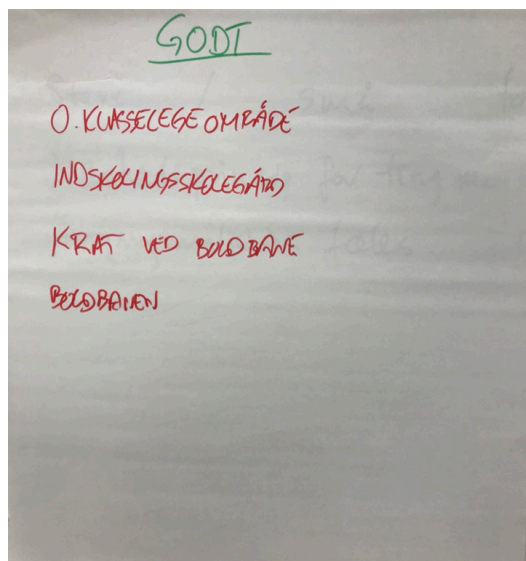 GODT
0. KLASSELEGEOMRÅDE
INDSKOLINGSSKOLEGÅRD
KRAT VED BOLDBANE
BOLDBANEN